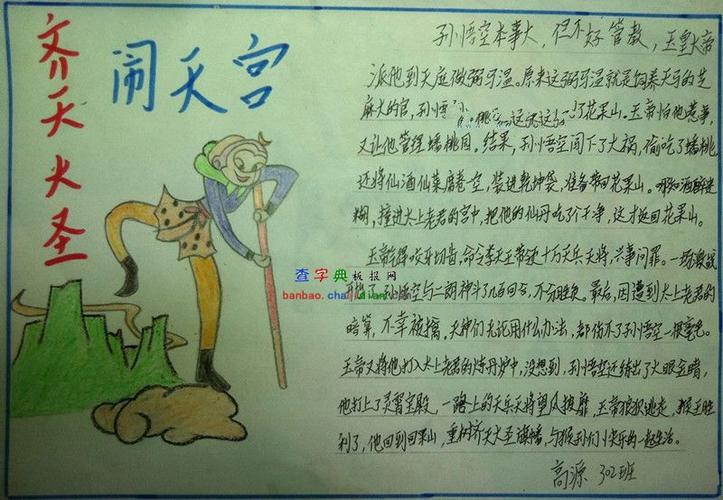 齐天大圣
闹天宫
孙悟空本事大，但不好管教，玉皇大帝
派他到天庭做弼马温。原来这弼马温就是饲养天马的芝
麻大的官，孙悟 花果山。玉帝怕他惹事，
又让他管理蟠桃园。结果，孙悟空闯下了大祸，偷吃了蟠桃
还将仙酒仙菜席卷空，装进乾坤袋，准备带回花果山。哪知酒醉迷
糊，撞进太上老君的宫中，把他的仙丹吃了个干净，这才返回花果山。
玉帝气得咬牙切齿，命令李天王带领十万天兵天将，兴事问罪。一场激战
孙悟空与二朗神斗了几百回合，不分胜败。最后，因遭到太上老君的
暗算，不幸被擒，天神们无论用什么办法，都伤不了孙悟空一根毫毛。
玉帝又将他打入太上老君的炼丹炉中，没想到，孙悟空还练出了火眼金睛，
他打上了灵霄宝殿，一路上的天兵天将望风披靡，玉帝狼狈逃走，猴王胜
利了，他回到回果山，重树齐天大圣旗幡，与猴孙们快乐的一起生活。
高源 302班
查字典板报网
banbao.chazidian.com